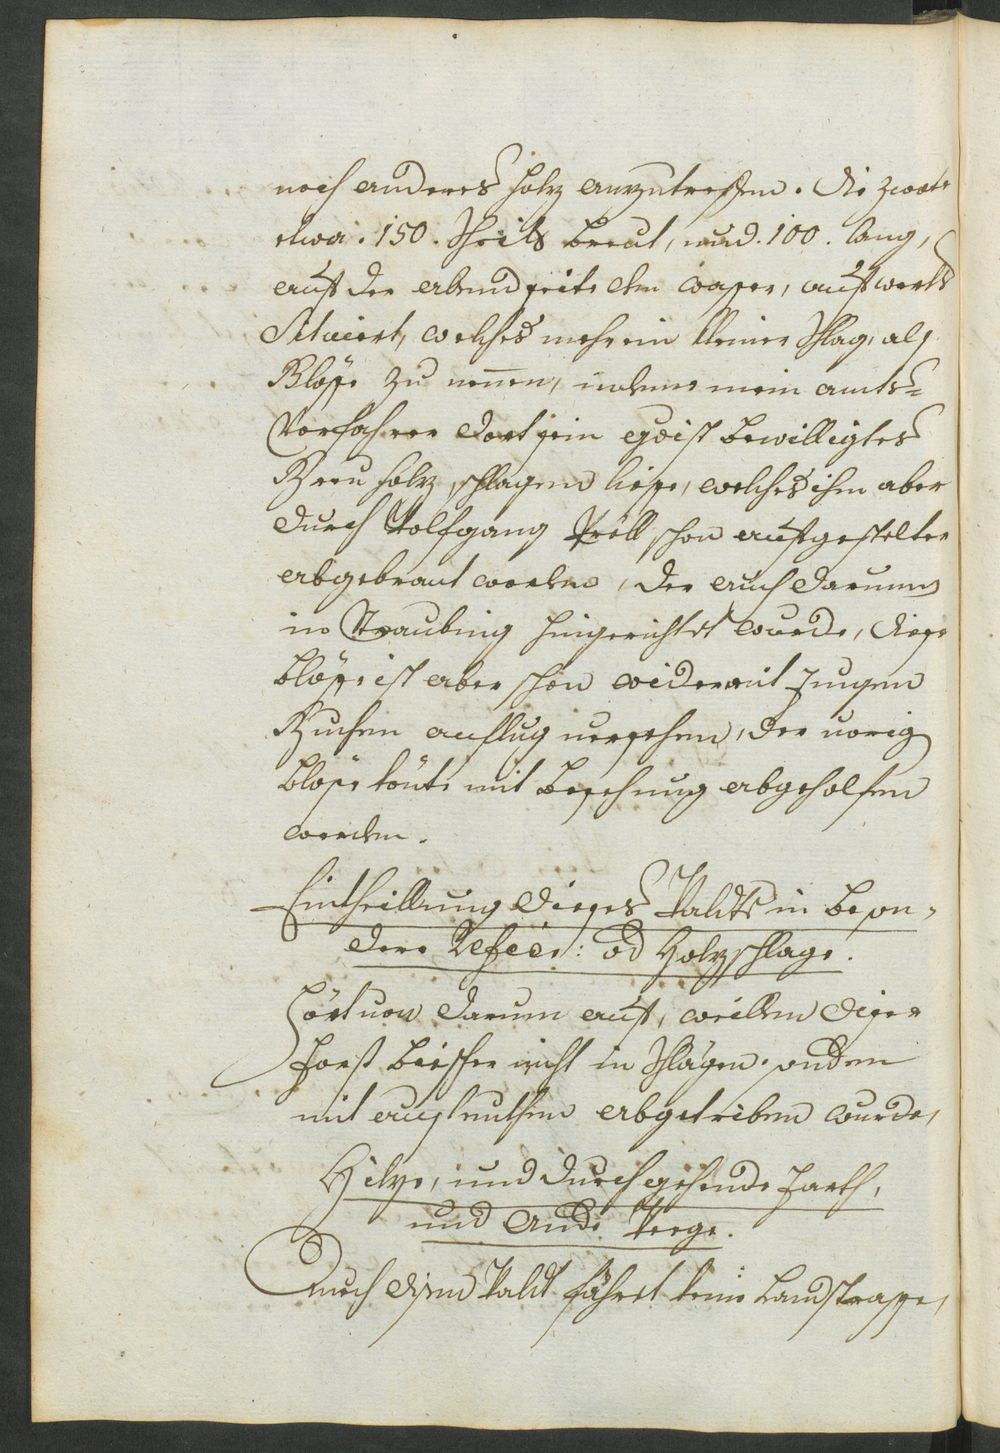 noch anderes Holz anzutreffen. die zwote
etwa. 150. Schritt breit, und. 100. lang,
auf der abendseite dem wasser, aufwerts
Situiert, welches mehr ein kleiner Schlag, als
Blösse zu nennen, indeme mein amts=
Vorfahrer dort sein gdist bewilligtes
Breu holz schlagen liesse, welches ihm aber
durch Wolfgang Pröll schon aufgestelter
abgebrant worden, der auch darum
in Straubing hingerichtet wurde, diese
blösse ist aber schon wider mit Jungen
Buchen anflug versehen, der vorig
blösse könte mit besehung abgeholfen
werden.
Eintheillung dieses Waldts in beson=
dere Refier: od Holzschläge.
Hört von darum auf, weillen diser
Forst bishher nicht in Schlägen sondern
mit ausleuthen abgetriben wurde,
Hilze, und durchgehende Farth,
und And: Weege.
Durch disen Waldt führet keine Landstrasse,